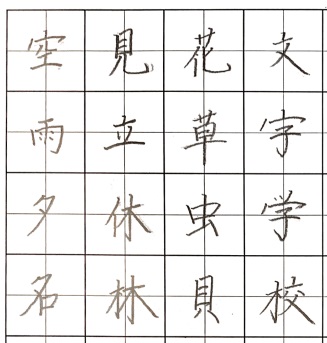 文字学校
花草虫貝
見立休林
空雨夕名